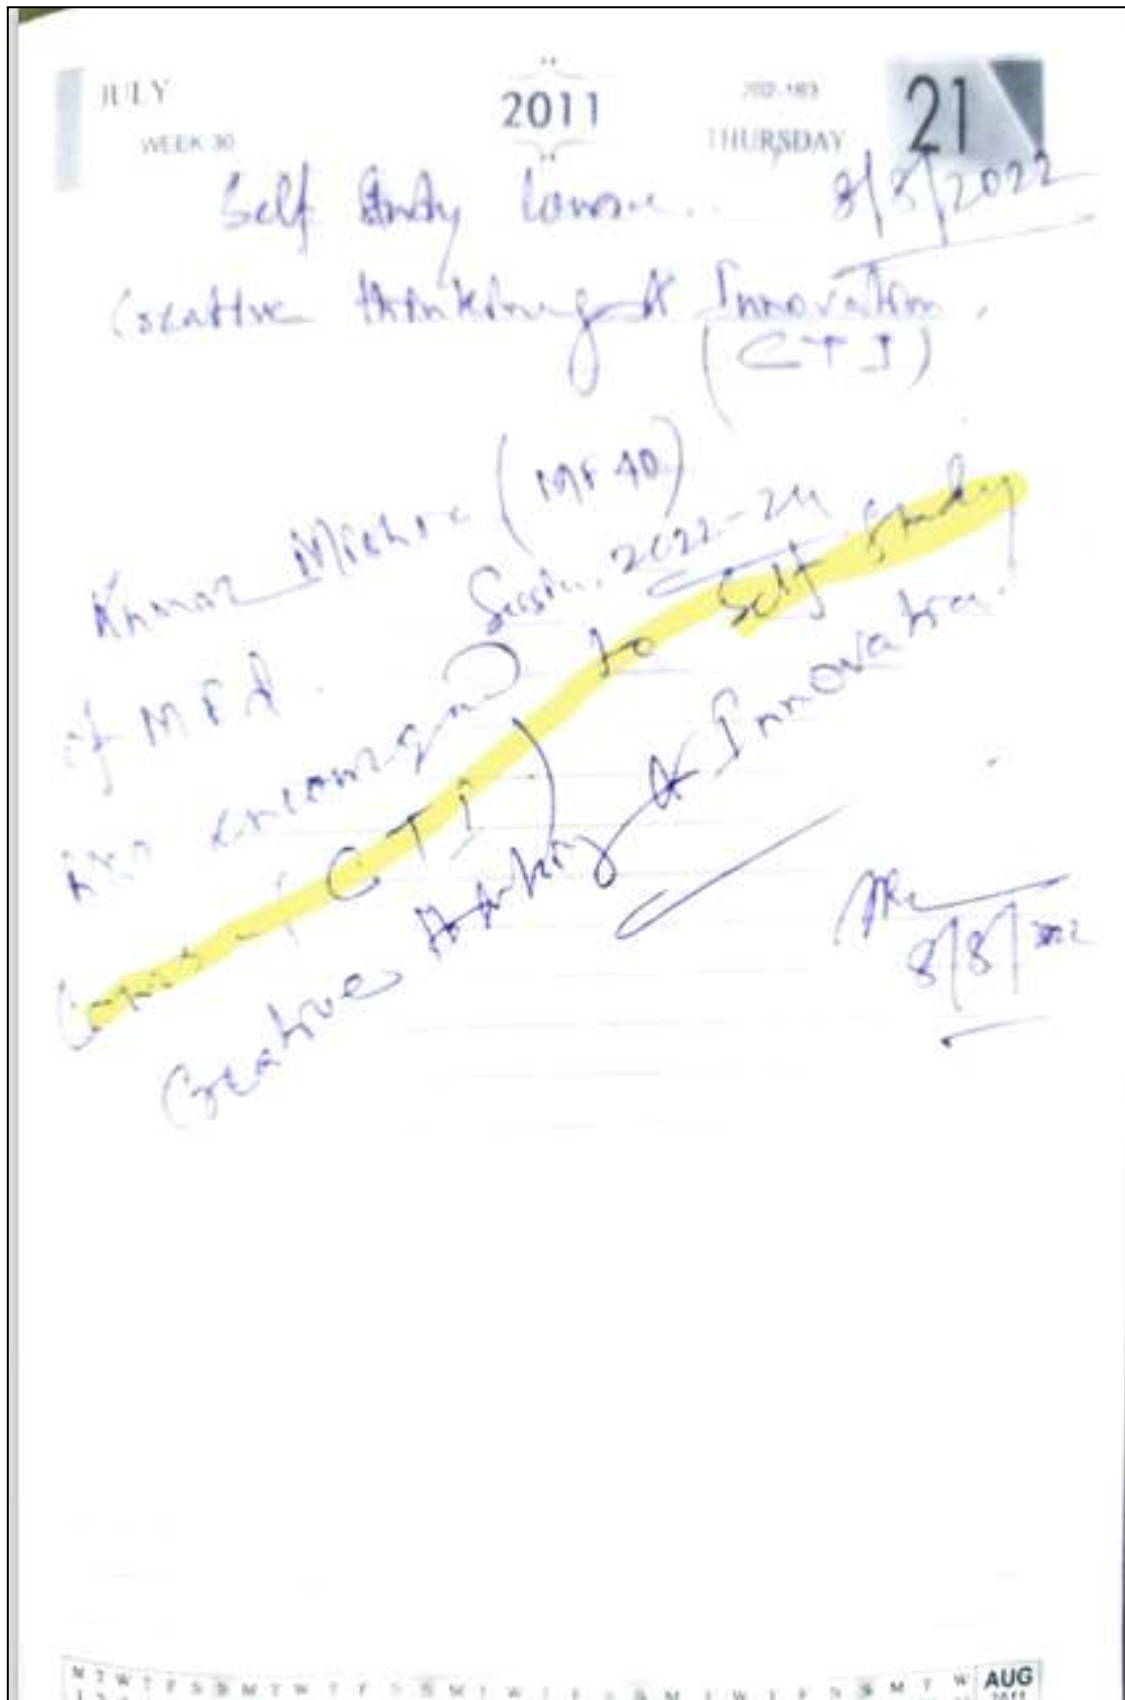 JULY
2011
202-163
21
WEEK 30
THURSDAY
Self Study Course..
8/8/2022
Creative thinking & Innovation.
(CTI)
Kumar Mishra (MFAD)
Session. 2022-24
of MFA.
encouraged to Self Study
Course of CTI)
Creative thinking & Innovation.
8/8/2022
M T W T F S S M T W T F S S M T W T F S S M T W T F S S M T W
AUG
2011